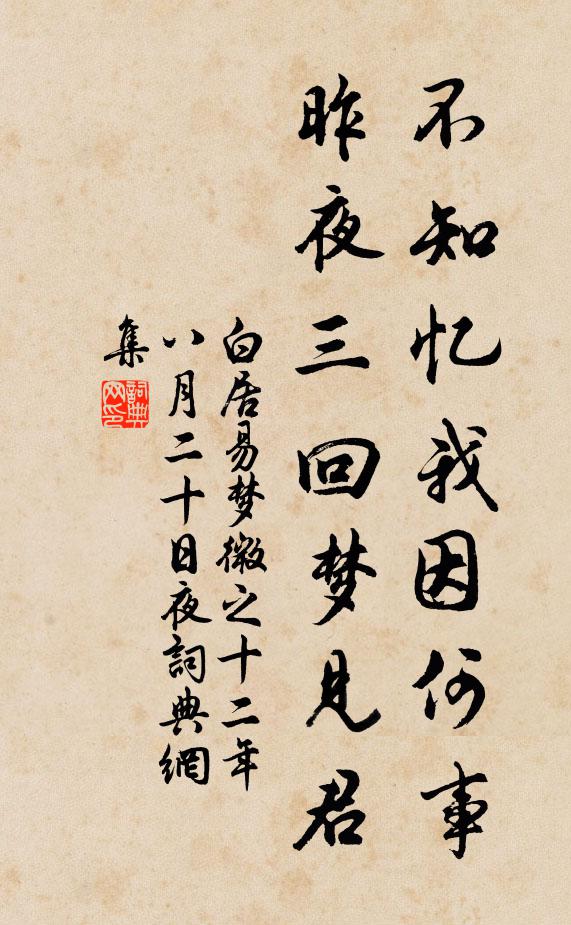 不知忆我因何事
昨夜三回梦见君
白居易梦微之十二年
八月二十日夜詞典網
集
詞典网印